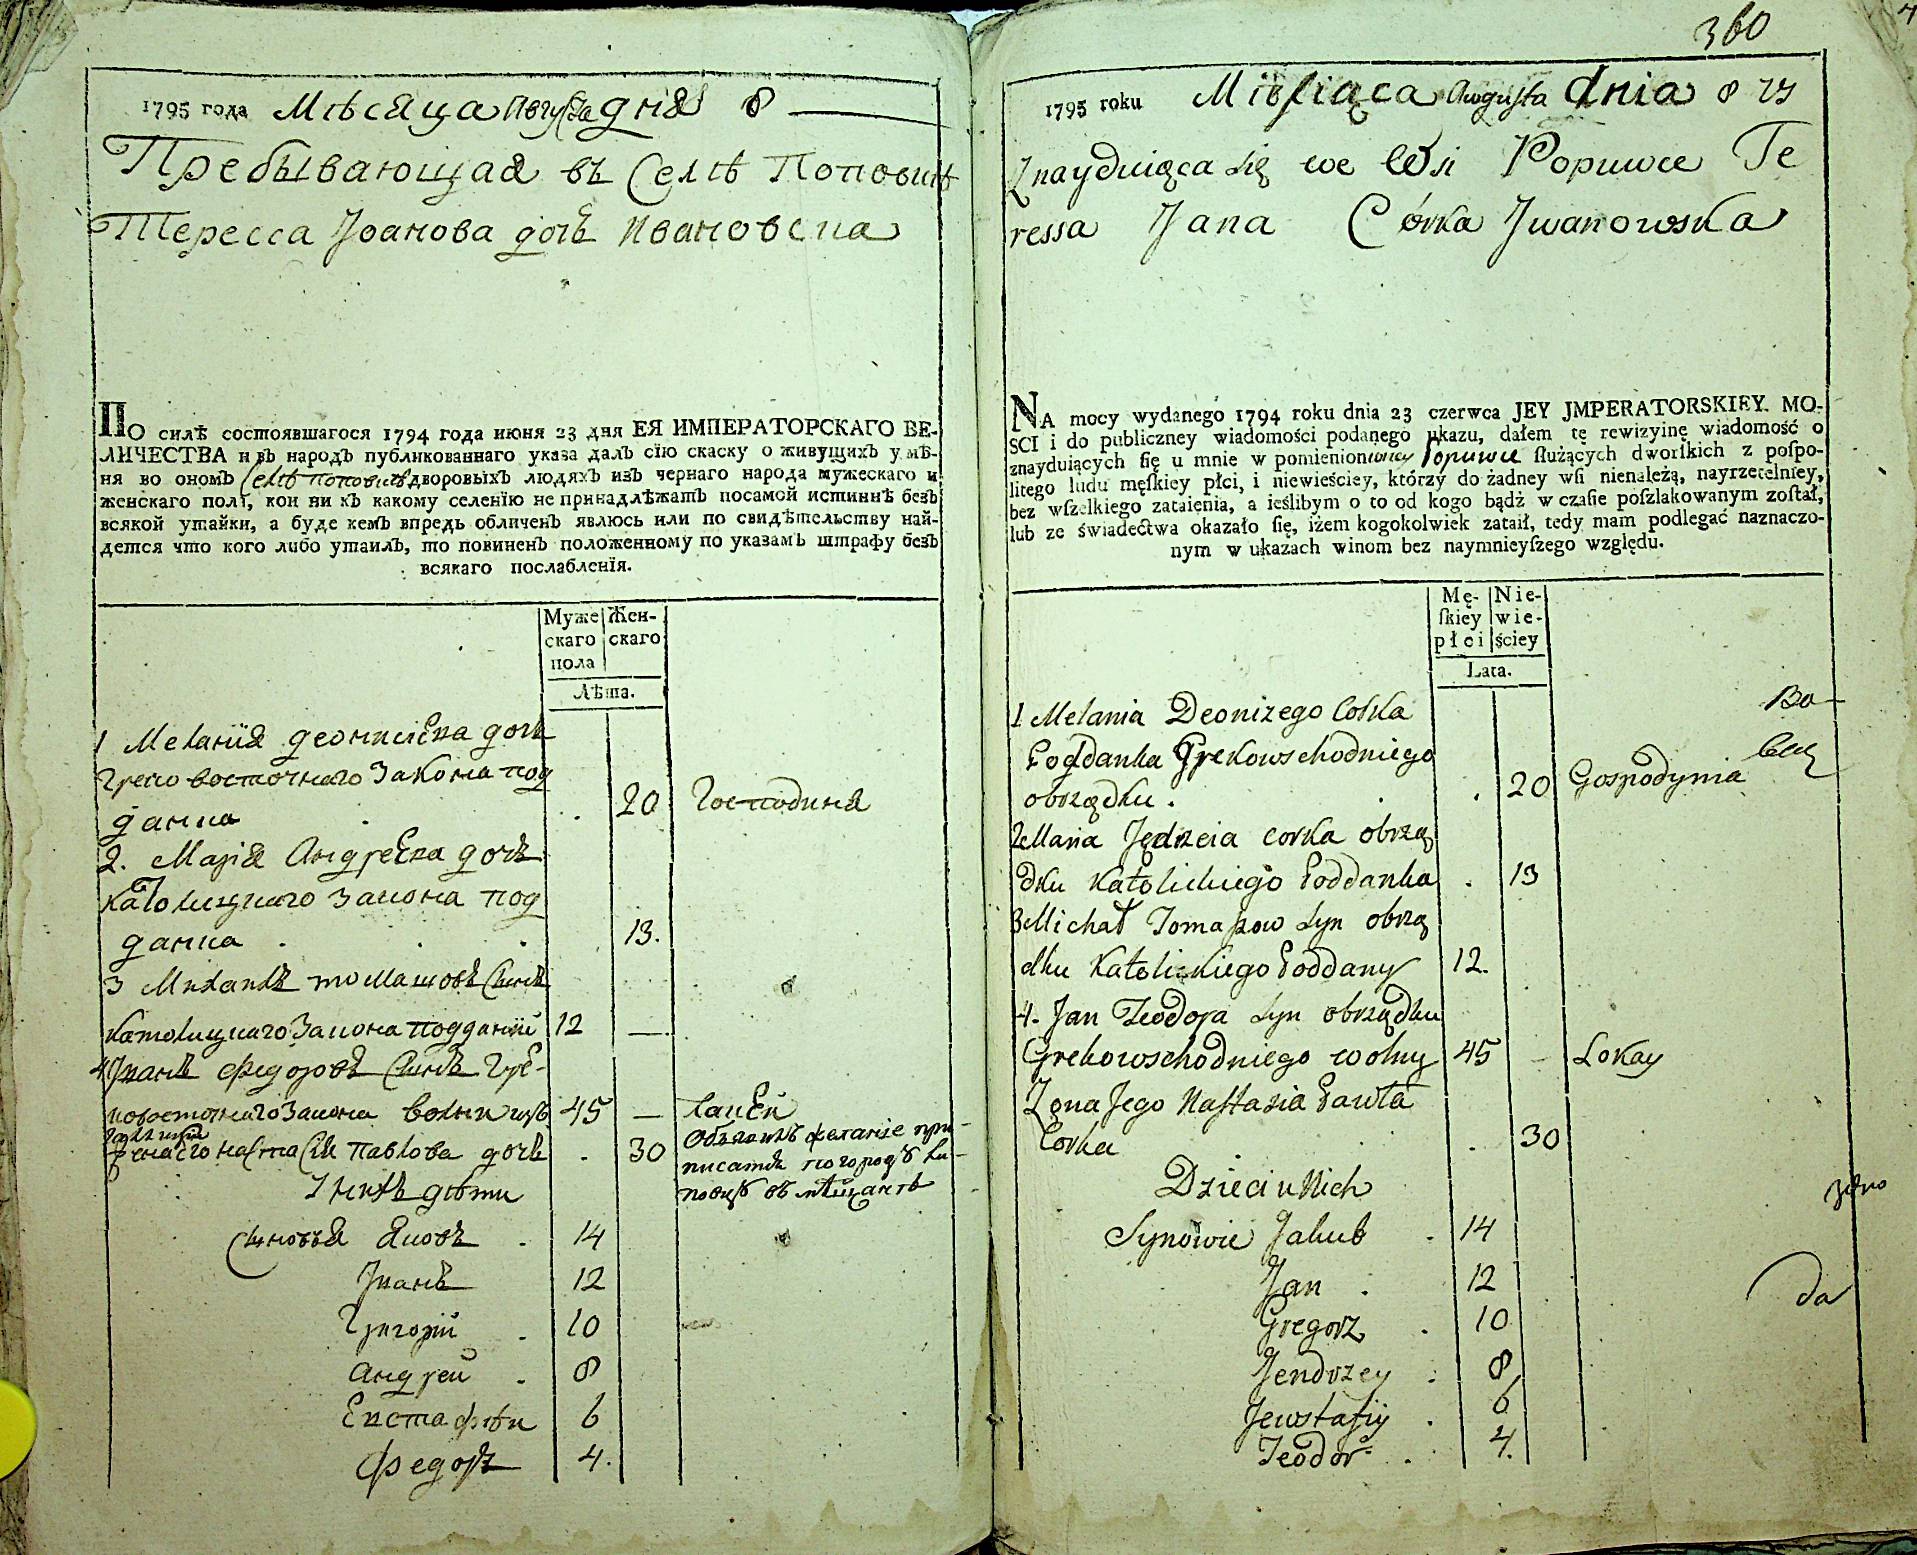 1795 года Мѣсяца Августа дня 8
Пребывающая въ Селѣ Поповцѣ
Тересса Іоанова дочь Ивановска
По силѣ состоявшагося 1794 года июня 23 дня ЕЯ ИМПЕРАТОРСКАГО ВЕ-
ЛИЧЕСТВА и въ народъ публикованнаго указа далъ сїю скаску о живущихъ у мѣ-
ня во ономъ Селѣ Поповцѣ дворовыхъ людяхъ изъ чернаго народа мужескаго и
женскаго полѣ, кои ни къ какому селенїю не принадлѣжатъ посамой истиннѣ безъ
всякой утайки, а буде кемъ впредь обличенъ явлюсь или по свидѣтельству най-
детея что кого либо утаилъ, то повиненъ положенному по указамъ штрафу безъ
всякаго послабленїя.
Муже Жен-
скаго скаго
пола
Лѣта.
1 Меланїя деонисіева дочь
Греко восточнаго Закона под
данка 20 Господиня
2. Марія Андреева дочь
католицкаго закона под
данка 13.
3 Михаилъ томашовъ Сынъ
католицкаго Закона подданїй 12 —
4 Іванъ Федоровъ Сынъ Гре-
ковосточнаго Закона волни 45 — лакей
жена его настасія Павлова дочь 30
Объявилъ желаніе при-
писатця по городѣ
въ мѣщанѣ
У нихъ дѣти
Сыновья Яковъ 14
Іванъ 12
Григорій 10
Андреи 8
Евстафѣи 6
Федоръ 4.
360
1795 roku Miesiąca Augusta dnia 8 v s
Znayduiąca się we Wsi Popuwce Te
ressa Jana Córka Jwanowska
NA mocy wydanego 1794 roku dnia 23 czerwca JEY JMPERATORSKIEY MO-
SCI i do publiczney wiadomości podanego ukazu, dałem tę rewizyinę wiadomość o
znayduiących ſię u mnie w pomienioney Popuwce ſłużących dworſkich z poſpo-
litego ludu męſkiey płci, i niewieściey, którzy do żadney wſi nienależą, nayrzetelniey,
bez wſzelkiego zataienia, a ieślibym o to od kogo bądź w czaſie poſzlakowanym zoſtał,
lub ze świadectwa okazało ſię, iżem kogokolwiek zataił, tedy mam podlegać naznaczo-
nym w ukazach winom bez naymnieyſzego względu.
Mę- Nie-
ſkiey wie-
płci ściey
Lata.
1 Melania Deonizego Corka
Poddanka Grekowschodniego
obrządku. 20 Gospodynia
2 Maria Jędrzeia corka obrzą
dku Katolickiego Poddanka 13
3 Michał Tomaszow Syn obrzą
dku Katolickiego Poddany 12.
4. Jan Teodora Syn obrządku
Grekowschodniego wolny 45 – Lokay
Zona Jego Nastazia Pawła
Corka 30
Dzieci u Nich
Synowie Jakub 14
Jan 12
Gregorz 10
Jendrzey 8
Jewstafiy 6
Teodor 4.